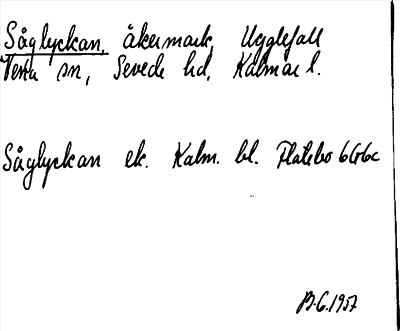 Såglyckan, åkermark, Ugglefall
Vena sn, Sevede hd, Kalmar l.
Såglyckan ek. Kalm. bl. Flatebo 6G6c
B.G. 1957